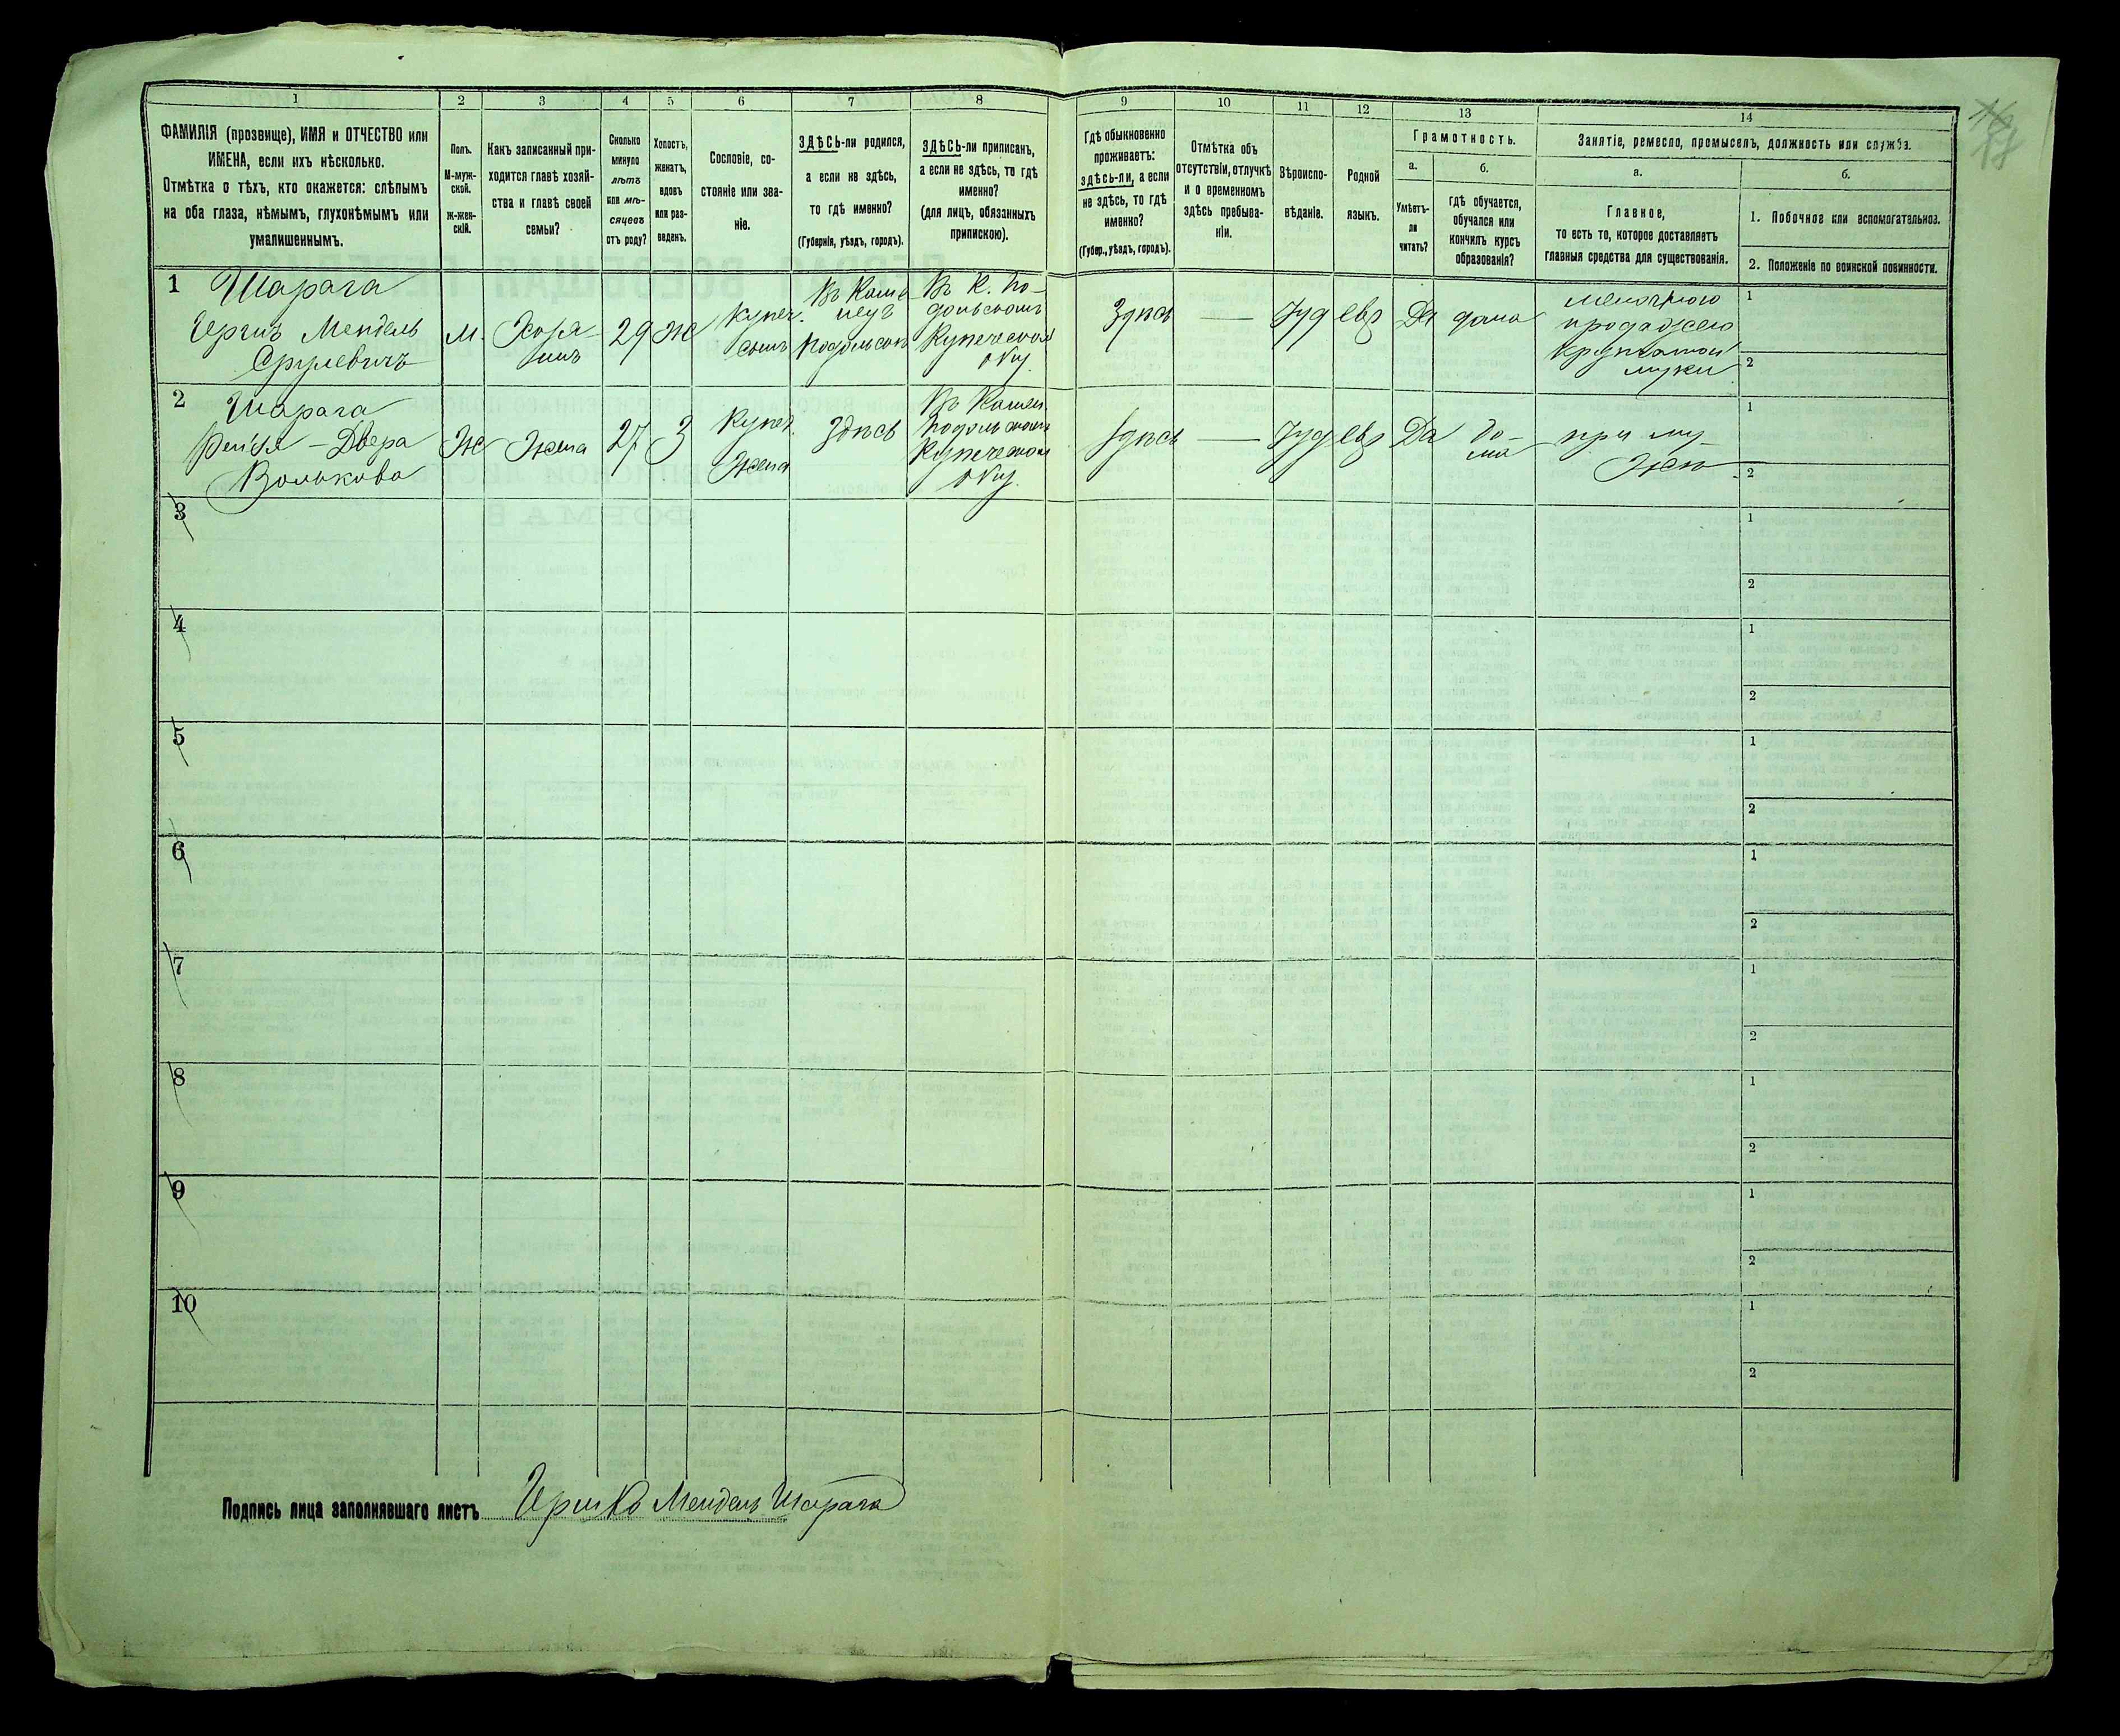 1
2
3
4
5
6
7
8
9
10
11
12
13
14
ФАМИЛІЯ (прозвище), ИМЯ и ОТЧЕСТВО или
ИМЕНА, если ихъ нѣсколько.
Отмѣтка о тѣхъ, кто окажется: слѣпымъ
на оба глаза, нѣмымъ, глухонѣмымъ или
умалишеннымъ.
Полъ.
М-муж-
ской.
ж-жен-
скій.
Какъ записанный при-
ходится главѣ хозяй-
ства и главѣ своей
семьи?
Сколько
минуло
лѣтъ
или мѣ-
сяцевъ
отъ роду?
Холостъ,
женатъ,
вдовъ
или раз-
веденъ.
Сословіе, со-
стояніе или зва-
ніе.
ЗДѢСЬ-ли родился,
а если не здѣсь,
то гдѣ именно?
(Губернія, уѣздъ, городъ).
ЗДѢСЬ-ли приписанъ,
а если не здѣсь, то гдѣ
именно?
(для лицъ, обязанныхъ
припискою).
Гдѣ обыкновенно
проживаетъ:
здѣсь-ли, а если
не здѣсь, то гдѣ
именно?
(Губер., уѣздъ, городъ).
Отмѣтка объ
отсутствіи, отлучкѣ
и о временномъ
здѣсь пребыва-
ніи.
Вѣроиспо-
вѣданіе.
Родной
языкъ.
Грамотность.
а.
Умѣетъ-
ли
читать?
б.
гдѣ обучается,
обучался или
кончилъ курсъ
образованія?
Занятіе, ремесло, промыселъ, должность или служба.
а.
Главное,
то есть то, которое доставляетъ
главныя средства для существованія.
б.
1. Побочное или вспомогательное.
2. Положеніе по воинской повинности.
1
Шарага
Гершъ Мендель
Срулевичъ
м.
Хозя-
инъ
29
ж
купеч.
сынъ
Въ Каме
нецѣ
Подольскѣ
Въ К. По-
дольскомъ
Купеческом
Здѣсь
—
Іуд
евр
Да
дома
мелочною
продажею
крупчатой
муки
1
2
2
Шарага
Рейзя - Двера
Волькова
Ж
Жена
27
З
Купеч.
Жена
Здѣсь
Въ Камен.
Подольском
Купеческом
Здѣсь
—
Іуд
евр
Да
до-
ма
при му-
жѣ
1
2
3
1
2
4
1
2
5
1
2
6
1
2
7
1
2
8
1
2
9
1
2
10
1
2
Подпись лица заполнявшаго листъ Гершко Мендель Шарага